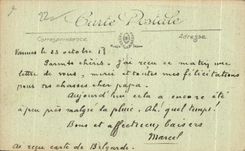 22
Carte Postale
Correspondance
Adresse
Vannes le 23 octobre 18
Parents chéris, j'ai reçu ce matin une
lettre de vous, merci et toutes mes félicitations
pour tes chasses cher papa.
Aujourd'hui cela a encore été
à peu près malgré la pluie. Ah! quel temps!
Bons et affectueux baisers
Marcel
Ai reçu carte de Belgarde.